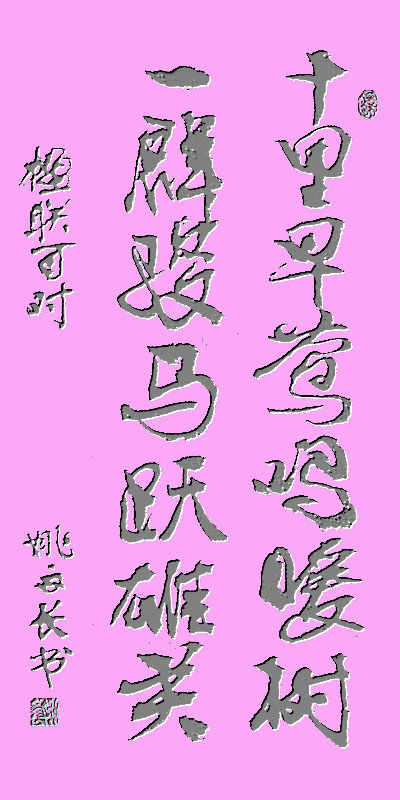 十里早莺鸣暖树
一群骏马跃雄关
楹联一对
姚 长书